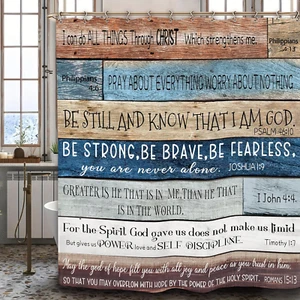 I can do ALL THINGS Through CHRIST Which strengthens me.
Philippians
Philippians
4:6
PRAY ABOUT EVERYTHING WORRY ABOUT NOTHING
BE STILL AND KNOW THAT I AM GOD.
PSALM 46:10
BE STRONG, BE BRAVE, BE FEARLESS,
you are never alone. JOSHUA 1:9
GREATER IS HE THAT IS IN ME, THAN HE THAT
IS IN THE WORLD.
1 John 4:4.
For the Spirit God gave us does not make us timid
But gives us POWER love and SELF DISCIPLINE. Timothy 1:7
May the god of hope fill you with all joy and peace as you trust in him,
SO THAT YOU MAY OVERFLOW WITH HOPE BY THE POWER OF THE HOLY SPIRIT. ROMANS 15:13